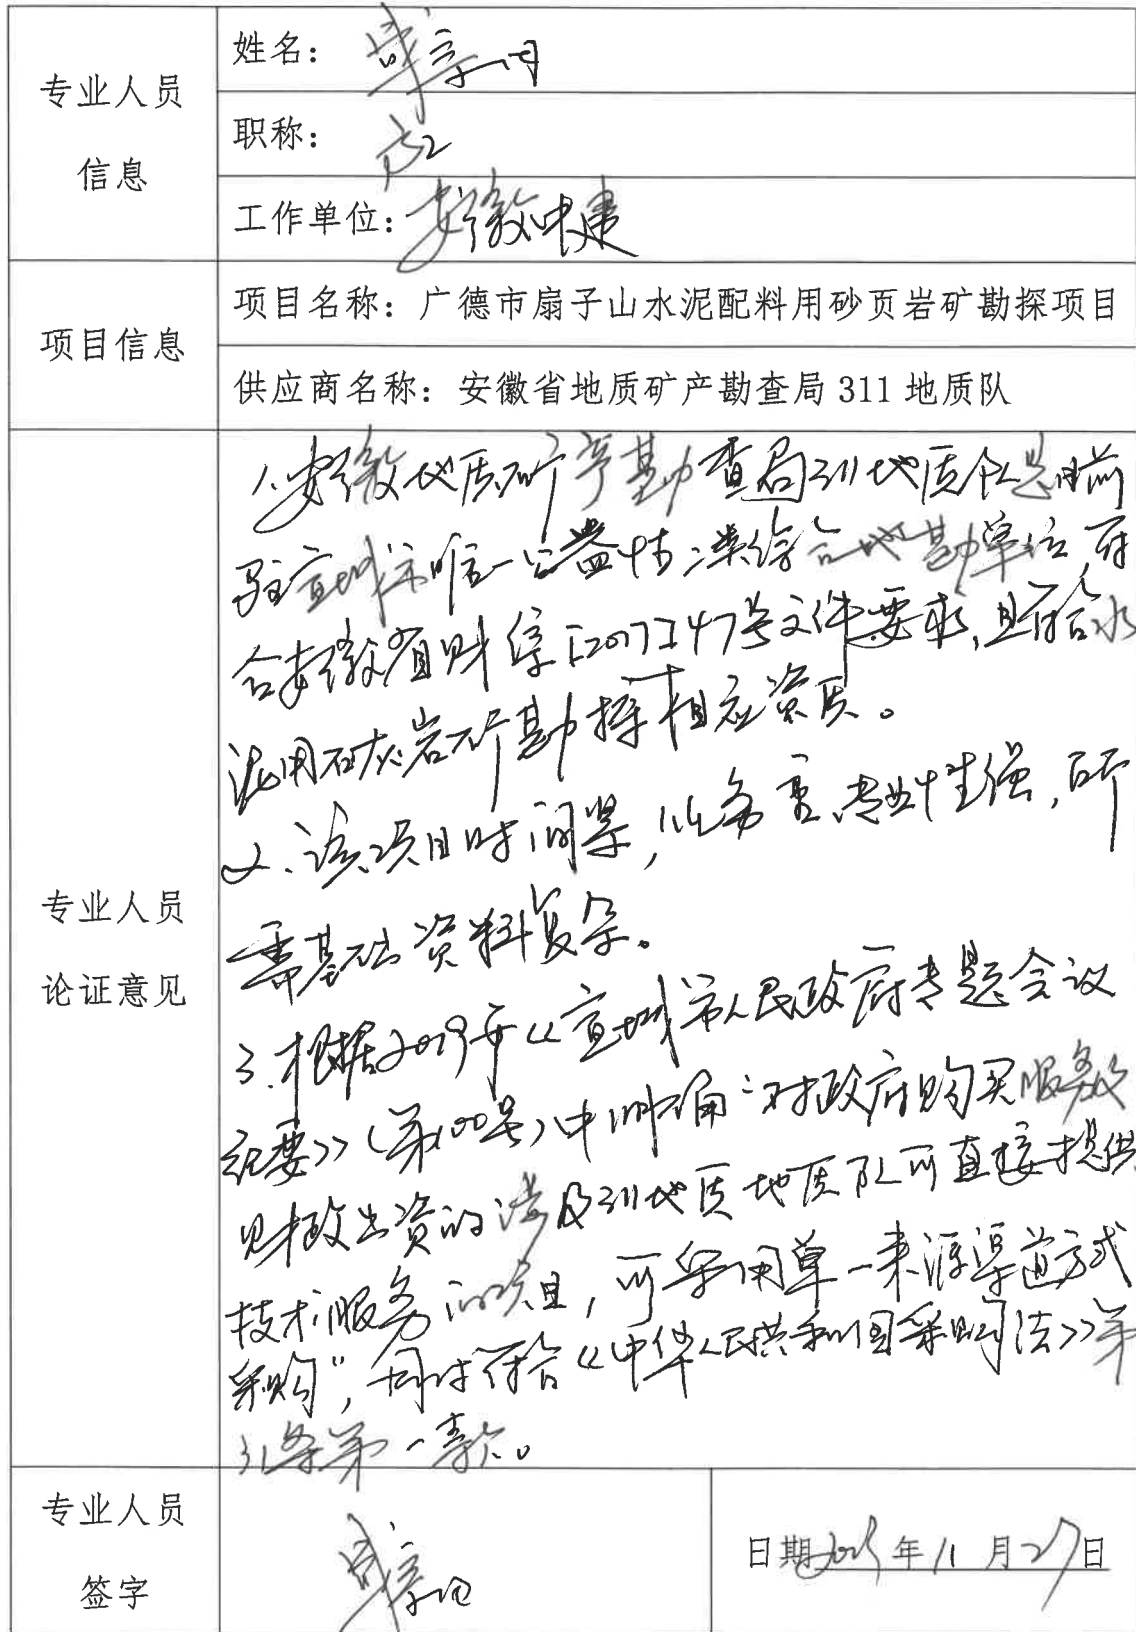 专业人员
信息
姓名：
职称：高工
工作单位：安徽中建
项目信息
项目名称：广德市扇子山水泥配料用砂页岩矿勘探项目
供应商名称：安徽省地质矿产勘查局 311 地质队
专业人员
论证意见
1.安徽地质矿产勘查局311地质队是目前
驻宣城市唯一公益性二类综合地勘单位，符
合安徽省财综[2017]47号文件要求，且符合水
泥用石灰岩矿勘探相应资质。
2.该项目时间紧，任务重，专业性强，所
需基础资料复杂。
3.根据2019年《宣城市人民政府专题会议
纪要》（第100号）中明确：对政府购买服务及
财政出资的涉及311地质地质队可直接提供
技术服务的项目，可采用单一来源渠道方式
采购”，同时符合《中华人民共和国采购法》第
31条第一款。
专业人员
签字
日期 年 11 月 27 日